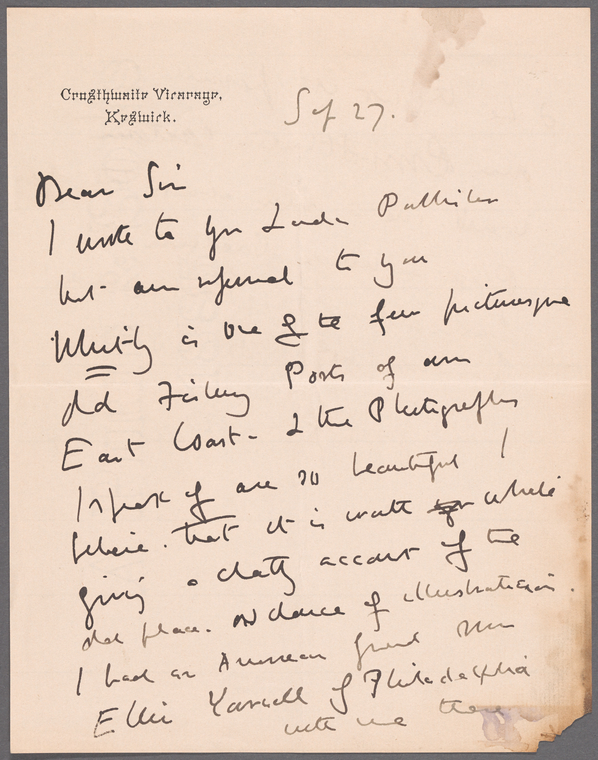 Crosthwaite Vicarage,
Keswick.
Sep 27.
Dear Sir
I wrote to yr London Publisher
but am referred to you
Whitby is one of the few picturesque
old Fishing Ports of our
East Coast - & the Photographs
I speak of are so beautiful I
believe that it is worth while
giving a chatty account of the
old place. of illustration.
I had an American friend Mr
Ellis Yarnall of Philadelphia
with me there